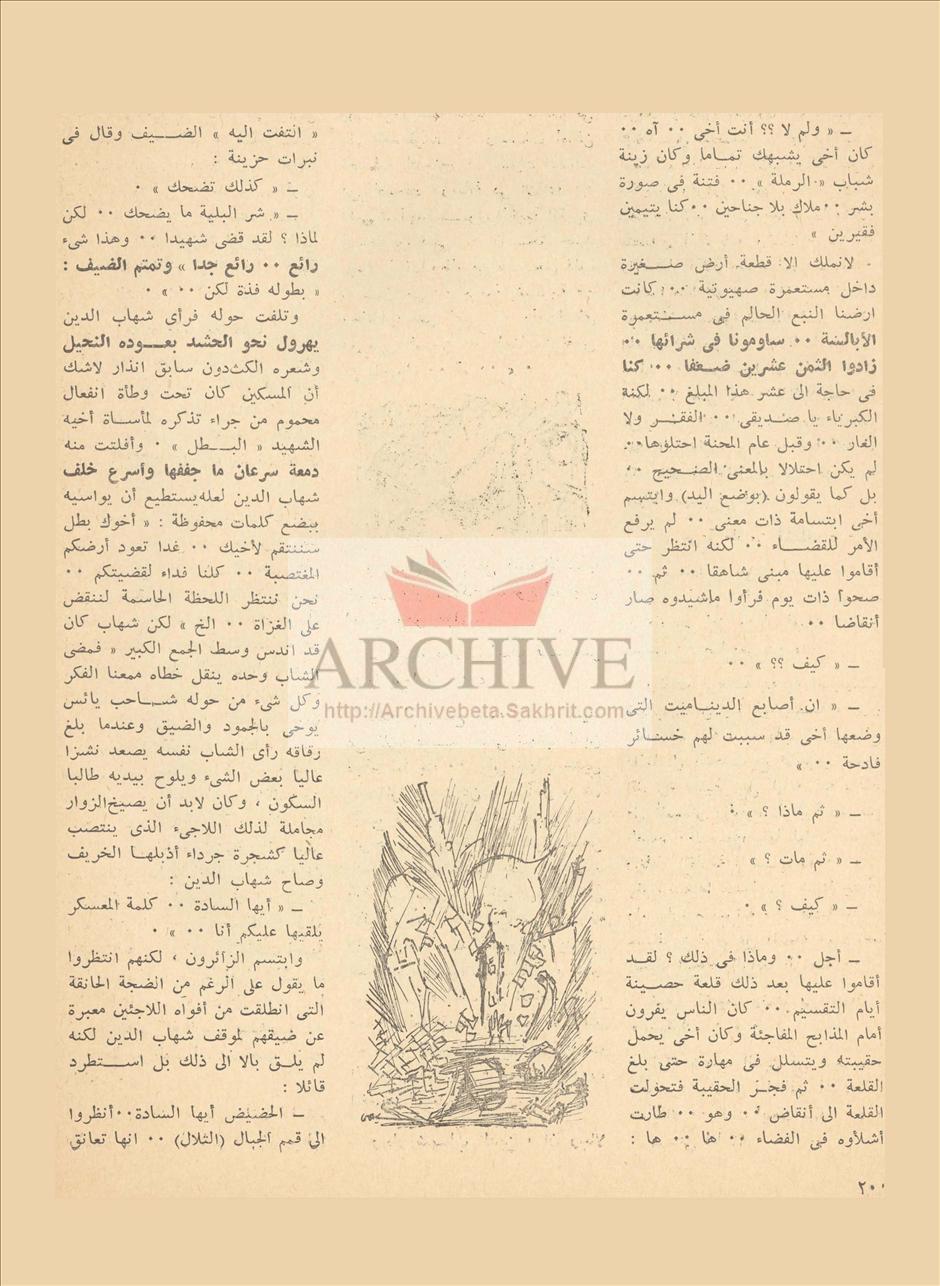 ـ « ولم لا ؟؟ أنت أخى ٠٠ آه ٠٠
كان أخى يشبهك تمـاما وكان زينة
شباب « الرملة » ٠٠ فتنة فى صورة
بشر ٠٠ ملاك بلا جناحين ٠٠ كنا يتيمين
فقيرين »
ـ لانملك الا قطعة أرض صـغيرة
داخل مستعمرة صهيوتية ٠٠ كانت
ارضنا النبع الحالم فى مسـتعمرة
الأبالسة ٠٠ ساومونا فى شرائها ٠٠
زادوا الثمن عشرين ضـعفا ٠٠ كنا
فى حاجة الى عشر هذا المبلغ ٠٠ لكنه
الكبرياء يا صـديقى ٠٠ الفقـر ولا
العار ٠٠ وقبل عام المحنة احتلوها ٠٠
لم يكن احتلالا بالمعنى الصـحيح ٠٠
بل كما يقولون (بوضع اليد) وابتسم
أخى ابتسامة ذات معنى ٠٠ لم يرفع
الأمر للقضـاء ٠٠ لكنه انتظر حتى
أقاموا عليها مبنى شاهقا ٠٠ ثم ٠٠
صحوا ذات يوم فرأوا ماشيدوه صار
أنقاضا ٠٠
ـ « كيف ؟؟ » ٠٠
ـ « ان أصابع الدينـاميت التى
وضعها أخى قد سببت لهم خسـائر
فادحة ٠٠ »
ـ « ثم ماذا ؟ » ٠
ـ « ثم مات ؟ »
ـ « كيف ؟ » ٠
ـ أجل ٠٠ وماذا فى ذلك ؟ لقـد
أقاموا عليها بعد ذلك قلعة حصـينة
أيام التقسيم ٠٠ كان الناس يفرون
أمام المذابح المفاجئة وكان أخى يحمل
حقيبته ويتسلل فى مهارة حتى بلغ
القلعة ٠٠ ثم فجـر الحقيبة فتحولت
القلعة الى أنقاض ٠٠ وهو ٠٠ طارت
أشلاؤه فى الفضاء ٠٠ ها ٠٠ ها :
« التفت اليه » الضـيف وقال فى
نبرات حزينة :
ـ « كذلك تضحك » ٠
ـ « شر البلية ما يضحك ٠٠ لكن
لماذا ؟ لقد قضى شهيدا ٠٠ وهذا شىء
رائع ٠٠ رائع جدا » وتمتم الضيف :
« بطوله فذة لكن ٠٠ » ٠
وتلفت حوله فرأى شهاب الدين
يهرول نحو الحشد بعـوده النحيل
وشعره الكثدون سابق انذار لاشك
أن المسكين كان تحت وطأة انفعال
محموم من جراء تذكره لمأسـاة أخيه
الشهيد « البـطل » ٠ وأفلتت منه
دمعة سرعان ما جففها وأسرع خلف
شهاب الدين لعله يستطيع أن يواسيه
ببضع كلمات محفوظة : « أخوك بطل
سننتقم لأخيك ٠٠ غدا تعود أرضكم
المغتصبة ٠٠ كلنا فداء لقضيتكم ٠٠
نحن ننتظر اللحظة الحاسمة لننقض
على الغزاة ٠٠ الخ » لكن شهاب كان
قد اندس وسط الجمع الكبير « فمضى
الشاب وحده ينقل خطاه ممعنا الفكر
وكل شىء من حوله شـاحب يائس
يوحى بالجمود والضيق وعندما بلغ
رفاقه رأى الشاب نفسه يصعد نشزا
عاليا بعض الشىء ويلوح بيديه طالبا
السكون ، وكان لابد أن يصيخ الزوار
مجاملة لذلك اللاجىء الذى ينتصب
عاليا كشجرة جرداء أذبلهـا الخريف
وصاح شهاب الدين :
ـ « أيها السادة ٠٠ كلمة المعسكر
يلقيها عليكم أنا ٠٠ » ٠
وابتسم الزائرون ، لكنهم انتظروا
ما يقول على الرغم من الضجة الحانقة
التى انطلقت من أفواه اللاجئين معبرة
عن ضيقهم لموقف شهاب الدين لكنه
لم يلـق بالا الى ذلك بل اسـتطرد
قائلا :
ـ الحضيض أيها السادة ٠٠ أنظروا
الى قمم الجبال (الثلال) ٠٠ انها تعانق
ARCHIVE
http://Archivebeta.Sakhrit.com
٢٠